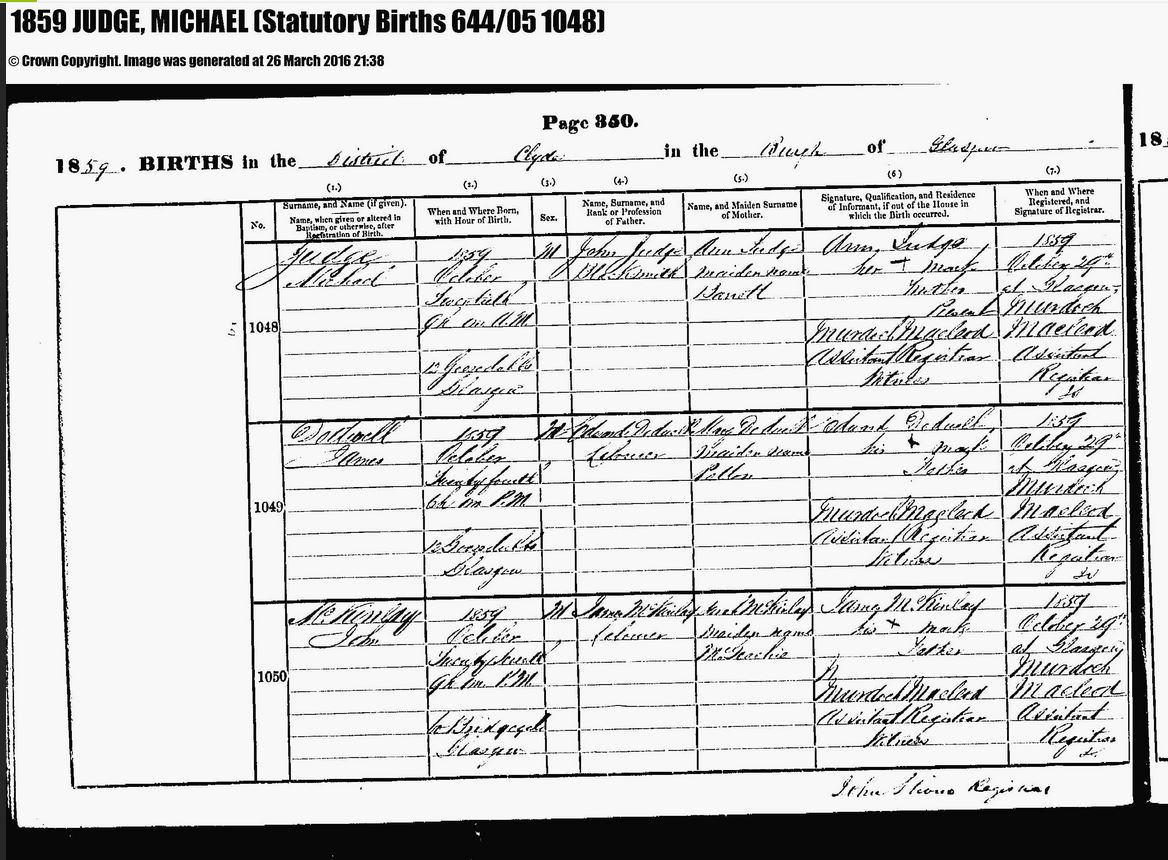 1859 JUDGE, MICHAEL (Statutory Births 644/05 1048)
© Crown Copyright. Image was generated at 26 March 2016 21:38
Page 350.
1859. BIRTHS in the District of Clyde in the Burgh of Glasgow
18
(1.) (2.) (3.) (4.) (5.) (6) (7.)
No.
Surname, and Name (if given).
Name, when given or altered in
Baptism, or otherwise, after
Registration of Birth.
When and Where Born,
with Hour of Birth.
Sex.
Name, Surname, and
Rank or Profession
of Father.
Name, and Maiden Surname
of Mother.
Signature, Qualification, and Residence
of Informant, if out of the House in
which the Birth occurred.
When and Where
Registered, and
Signature of Registrar.
1048
Judge
Michael
1859
October
Twentieth
9h m A.M.
12 Goosedubbs
Glasgow
M
John Judge
Blacksmith
Ann Judge
Maiden name
Barrett
Ann Judge
her + mark
Mother
Present
Murdoch Macleod
Assistant Registrar
Witness
1859
October 29th
at Glasgow
Murdoch
Macleod
Assistant
Registrar
1049
Dodwell
James
1859
October
Twenty fourth
6h m P.M.
Goosedubbs
Glasgow
M
Labourer
Maiden name
his x mark
Father
Murdoch Macleod
Assistant Registrar
Witness
1859
October 29th
at Glasgow
Murdoch
Macleod
Assistant
Registrar
1050
McKinlay
John
1859
October
9h m P.M.
Bridgegate
Glasgow
M
James McKinlay
Labourer
McKinlay
Maiden name
James McKinlay
his x mark
Father
Murdoch Macleod
Assistant Registrar
Witness
1859
October 29th
at Glasgow
Murdoch
Macleod
Assistant
Registrar
John Registrar